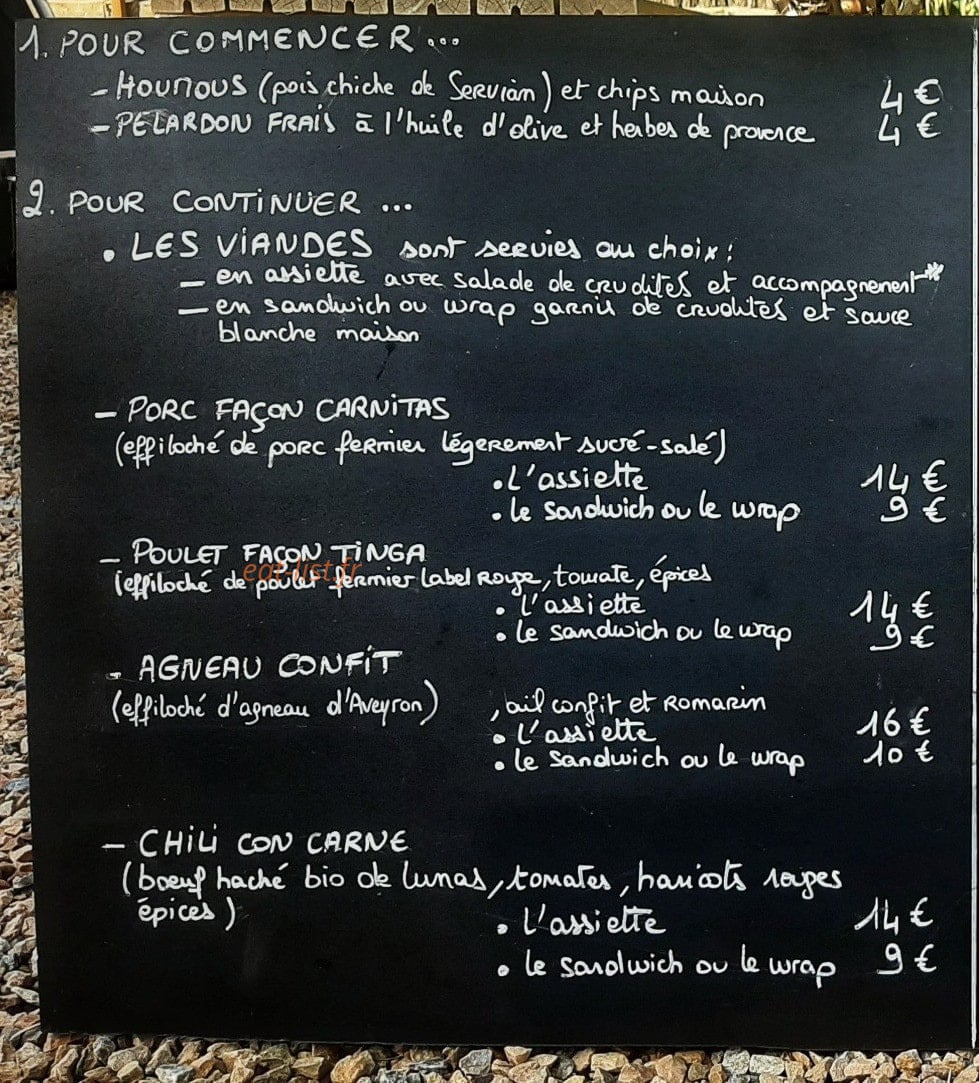 1. POUR COMMENCER ...
- HOUMOUS (pois chiche de Servian) et chips maison 4 €
- PELARDON FRAIS à l'huile d'olive et herbes de provence 4 €
2. POUR CONTINUER ...
• LES VIANDES sont servies au choix :
- en assiette avec salade de crudités et accompagnement*
- en sandwich ou wrap garnis de crudités et sauce
blanche maison
- PORC FAÇON CARNITAS
(effiloché de porc fermier légerement sucré-salé)
• L'assiette 14 €
• le sandwich ou le wrap 9 €
- POULET FAÇON TINGA
eat-list.fr
(effiloché de poulet fermier Label Rouge, tomate, épices
• l'assiette 14 €
• le sandwich ou le wrap 9 €
- AGNEAU CONFIT
(effiloché d'agneau d'Aveyron) , ail confit et Romarin
• L'assiette 16 €
• le sandwich ou le wrap 10 €
- CHILI CON CARNE
(boeuf haché bio de Lunas, tomates, haricots rouges
épices)
• L'assiette 14 €
• le sandwich ou le wrap 9 €